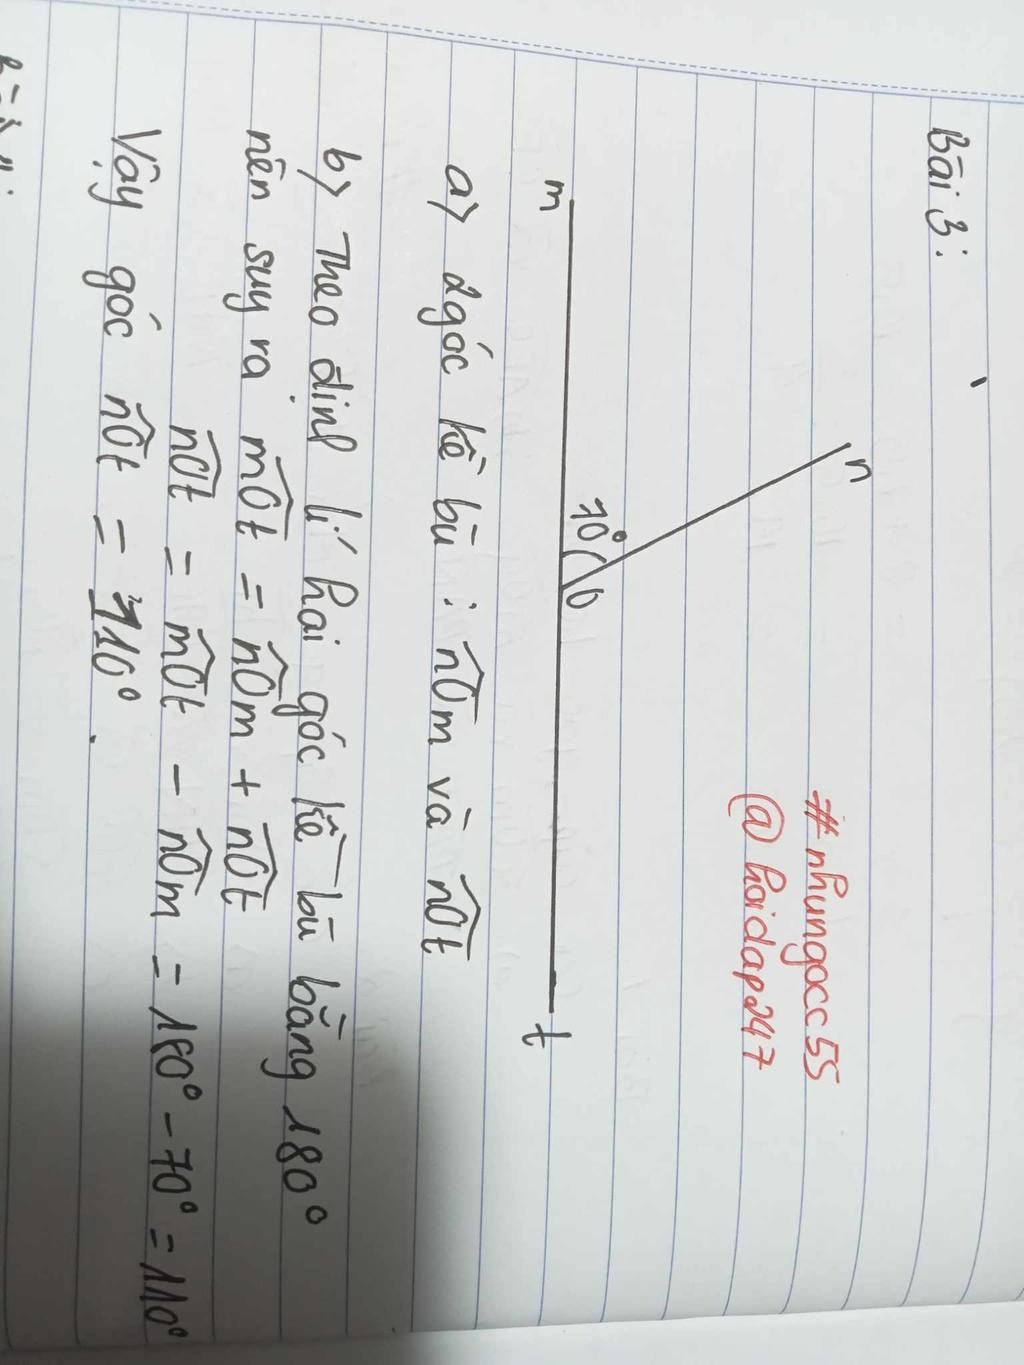 Bài 3:
#nhungocc55
@hoidap247
n
70°
m O t
a) 2góc kề bù : nÔm và nÔt
b) Theo định lí hai góc kề bù bằng 180°
nên suy ra mÔt = nÔm + nÔt
nÔt = mÔt - nÔm = 180° - 70° = 110°
Vậy góc nÔt = 110°.